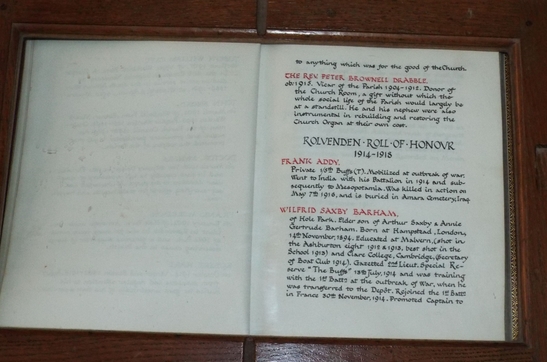 to anything which was for the good of the Church.
THE REV. PETER BROWNELL DRABBLE.
ob: 1915. Vicar of the Parish 1904-1912. Donor of
the Church Room, a gift without which the
whole social life of the Parish would largely be
at a standstill. He and his nephew were also
instrumental in rebuilding and restoring the
Church Organ at their own cost.
ROLVENDEN·ROLL·OF·HONOUR
1914-1918
FRANK ADDY.
Private 5th Buffs (T). Mobilized at outbreak of war.
Went to India with his Battalion in 1914 and sub-
sequently to Mesopotamia. Was killed in action on
May 7th 1916, and is buried in Amara Cemetery, Iraq.
WILFRID SAXBY BARHAM.
of Hole Park. Elder son of Arthur Saxby & Annie
Gertrude Barham. Born at Hampstead, London,
14th November, 1894. Educated at Malvern, (shot in
the Ashburton eight 1912 & 1913, best shot in the
School 1913) and Clare College, Cambridge, (Secretary
of Boat Club 1914). Gazetted 2nd Lieut. Special Re-
serve "The Buffs" 15th July, 1914 and was training
with the 1st Batt: at the outbreak of War, when he
was transferred to the Depôt. Rejoined the 1st Batt:
in France 30th November, 1914. Promoted Captain to